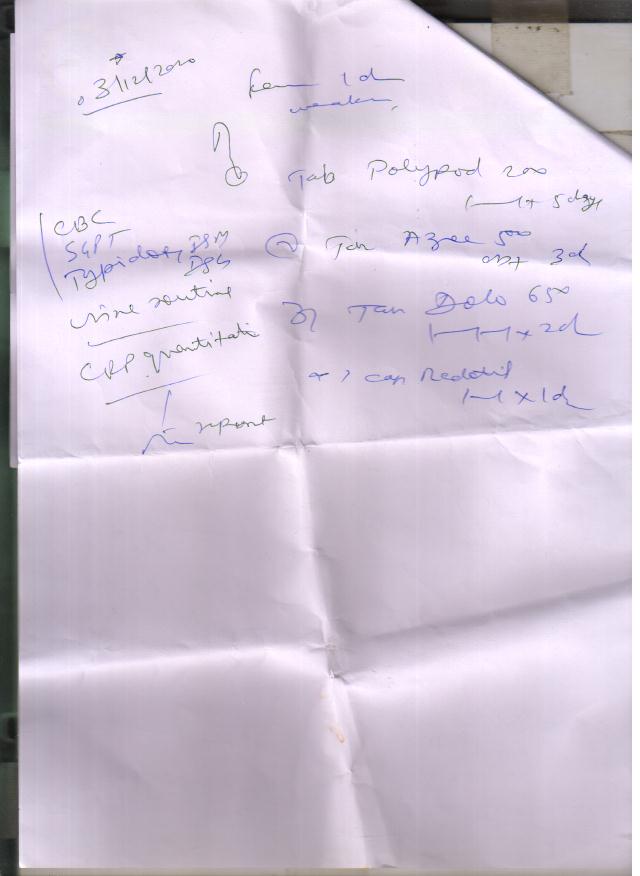 3/12/2020
1 d
Tab Polypod 200
1—1 x 5 days
CBC
SGPT
Typidot IgM
IgG
② Tab Azee 500
3d
urine routine
3) Tab Dolo 650
1—1—1 x 2d
CRP quantitati
4) cap Redotil
1—1 x 1d
report